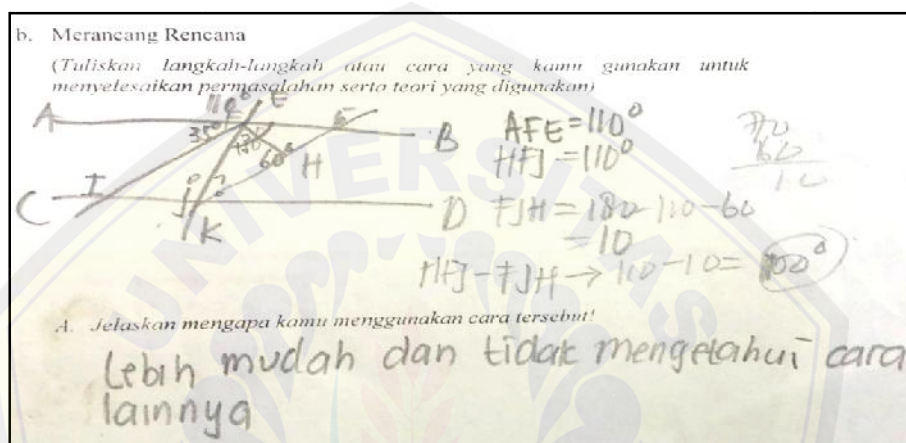 b. Merancang Rencana
(Tuliskan langkah-langkah atau cara yang kamu gunakan untuk
menyelesaikan permasalahan serta teori yang digunakan)
110° E
A 35° F G B
60° H
C I J D
K
AFE = 110°
HFJ = 110°
FJH = 180-110-60
= 10
HFJ - FJH → 110-10= 100°
70
60
10
A. Jelaskan mengapa kamu menggunakan cara tersebut!
Lebih mudah dan tidak mengetahui cara
lainnya
UNIVERSITAS